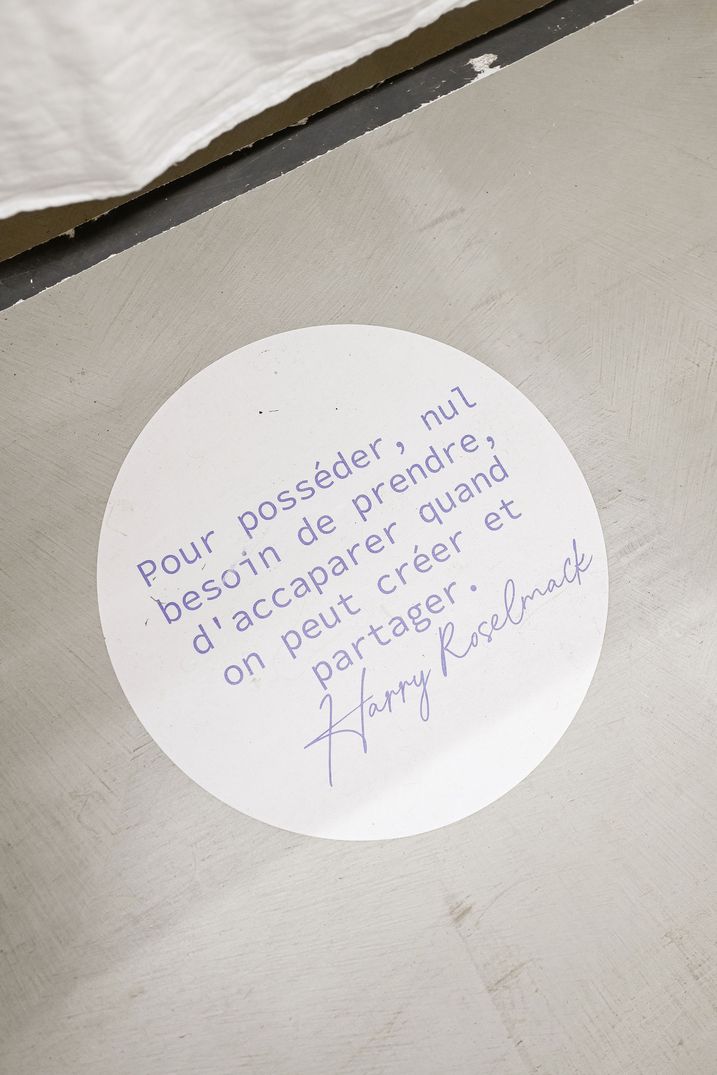 Pour posséder, nul
besoin de prendre,
d'accaparer quand
on peut créer et
partager.
Harry Roselmack